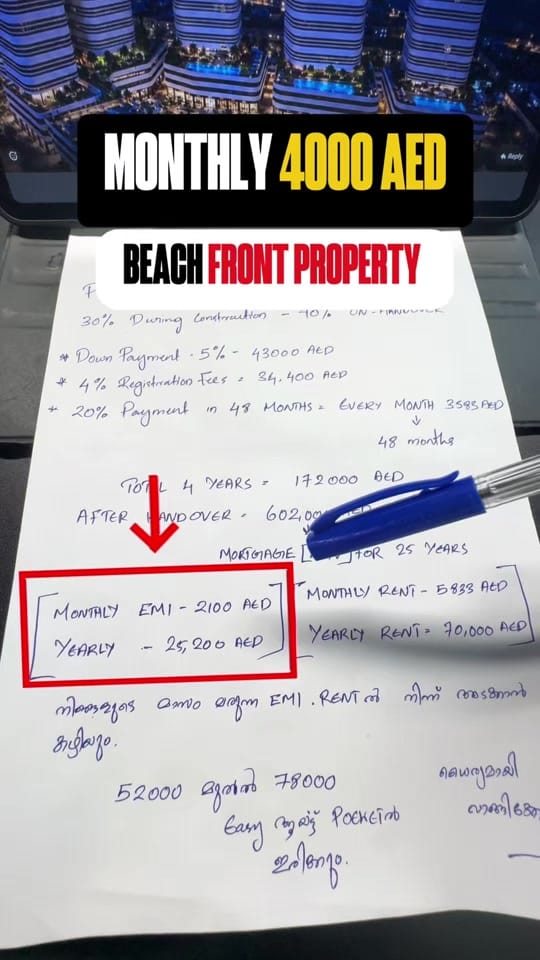 Reply
MONTHLY 4000 AED
BEACH FRONT PROPERTY
30% During Construction -
* Down Payment . 5% - 43000 AED
* 4% Registration Fees = 34,400 AED
* 20% Payment in 48 MONTHS = EVERY MONTH 3583 AED
↓
48 months
TOTAL 4 YEARS = 172000 AED
AFTER HANDOVER =
MORTGIAGIE [ ] FOR 25 YEARS
MONTHLY EMI - 2100 AED
YEARLY - 25,200 AED
MONTHLY RENT - 5833 AED
YEARLY RENT = 70,000 AED
നിങ്ങളുടെ മാസം വരുന്ന EMI . RENT ൽ നിന്ന് അടക്കാൻ
കഴിയും.
52000 മുതൽ 78000
Easy ആയിട്ട് POCKETൽ
ഇരിക്കും.
ധൈര്യമായി